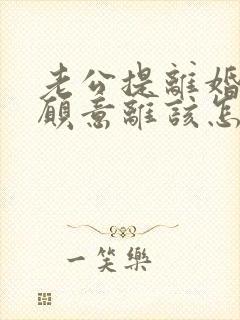 老公提離婚
願意離該怎
一笑樂